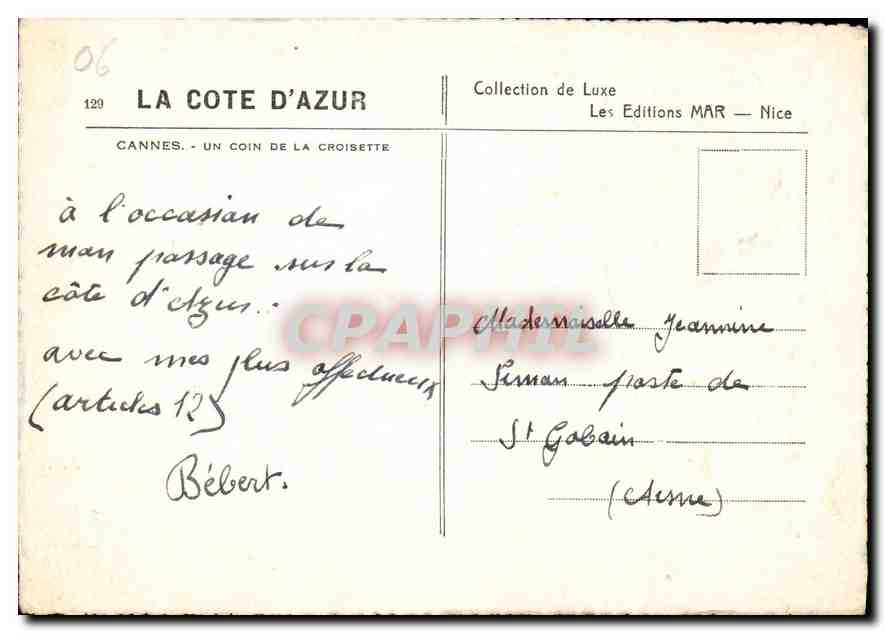 06
129 LA COTE D'AZUR
CANNES. - UN COIN DE LA CROISETTE
Collection de Luxe
Les Editions MAR — Nice
à l'occasion de
mon passage sur la
côte d'Azur..
avec mes plus affectueux
(articles 12)
Bébert.
Mademoiselle Jeannine
Simon poste de
St Gobain
(Aisne)
CPAPHIL